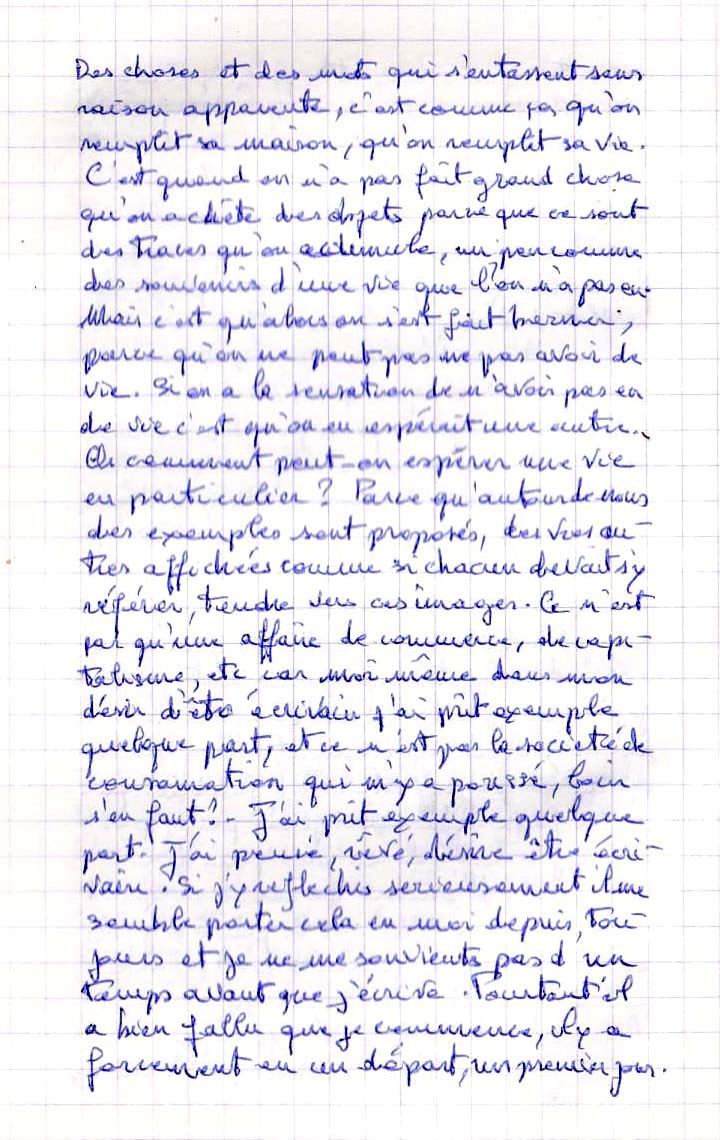 Des choses et des mots qui s'entassent sans
raison apparente, c'est comme ça qu'on
remplit sa maison, qu'on remplit sa vie.
C'est quand on n'a pas fait grand chose
qu'on achète des objets parce que ce sont
des traces qu'on accumule, un peu comme
des souvenirs d'une vie que l'on n'a pas eu.
Mais c'est qu'alors on s'est fait berner,
parce qu'on ne peut pas ne pas avoir de
vie. Si on a la sensation de n'avoir pas eu
de vie c'est qu'on en espérait une autre..
Or comment peut-on espérer une vie
en particulier? Parce qu'autour de nous
des exemples sont proposés, des vies au-
tres affichées comme si chacun devait s'y
référer, tendre vers ces images. Ce n'est
pas qu'une affaire de commerce, de capi-
talisme, etc car moi même dans mon
désir d'être écrivain j'ai prit exemple
quelque part, et ce n'est pas la société de
consomation qui m'y a poussé, loin
s'en faut! - J'ai prit exemple quelque
part. J'ai pensé, rêvé, désiré être écri-
vain. Si j'y réfléchis serieusement il me
semble porter cela en moi depuis tou-
jours et je ne me souvients pas d'un
temps avant que j'écrive. Pourtant il
a bien fallu que je commence, il y a
forcement eu un départ, un premier jour.